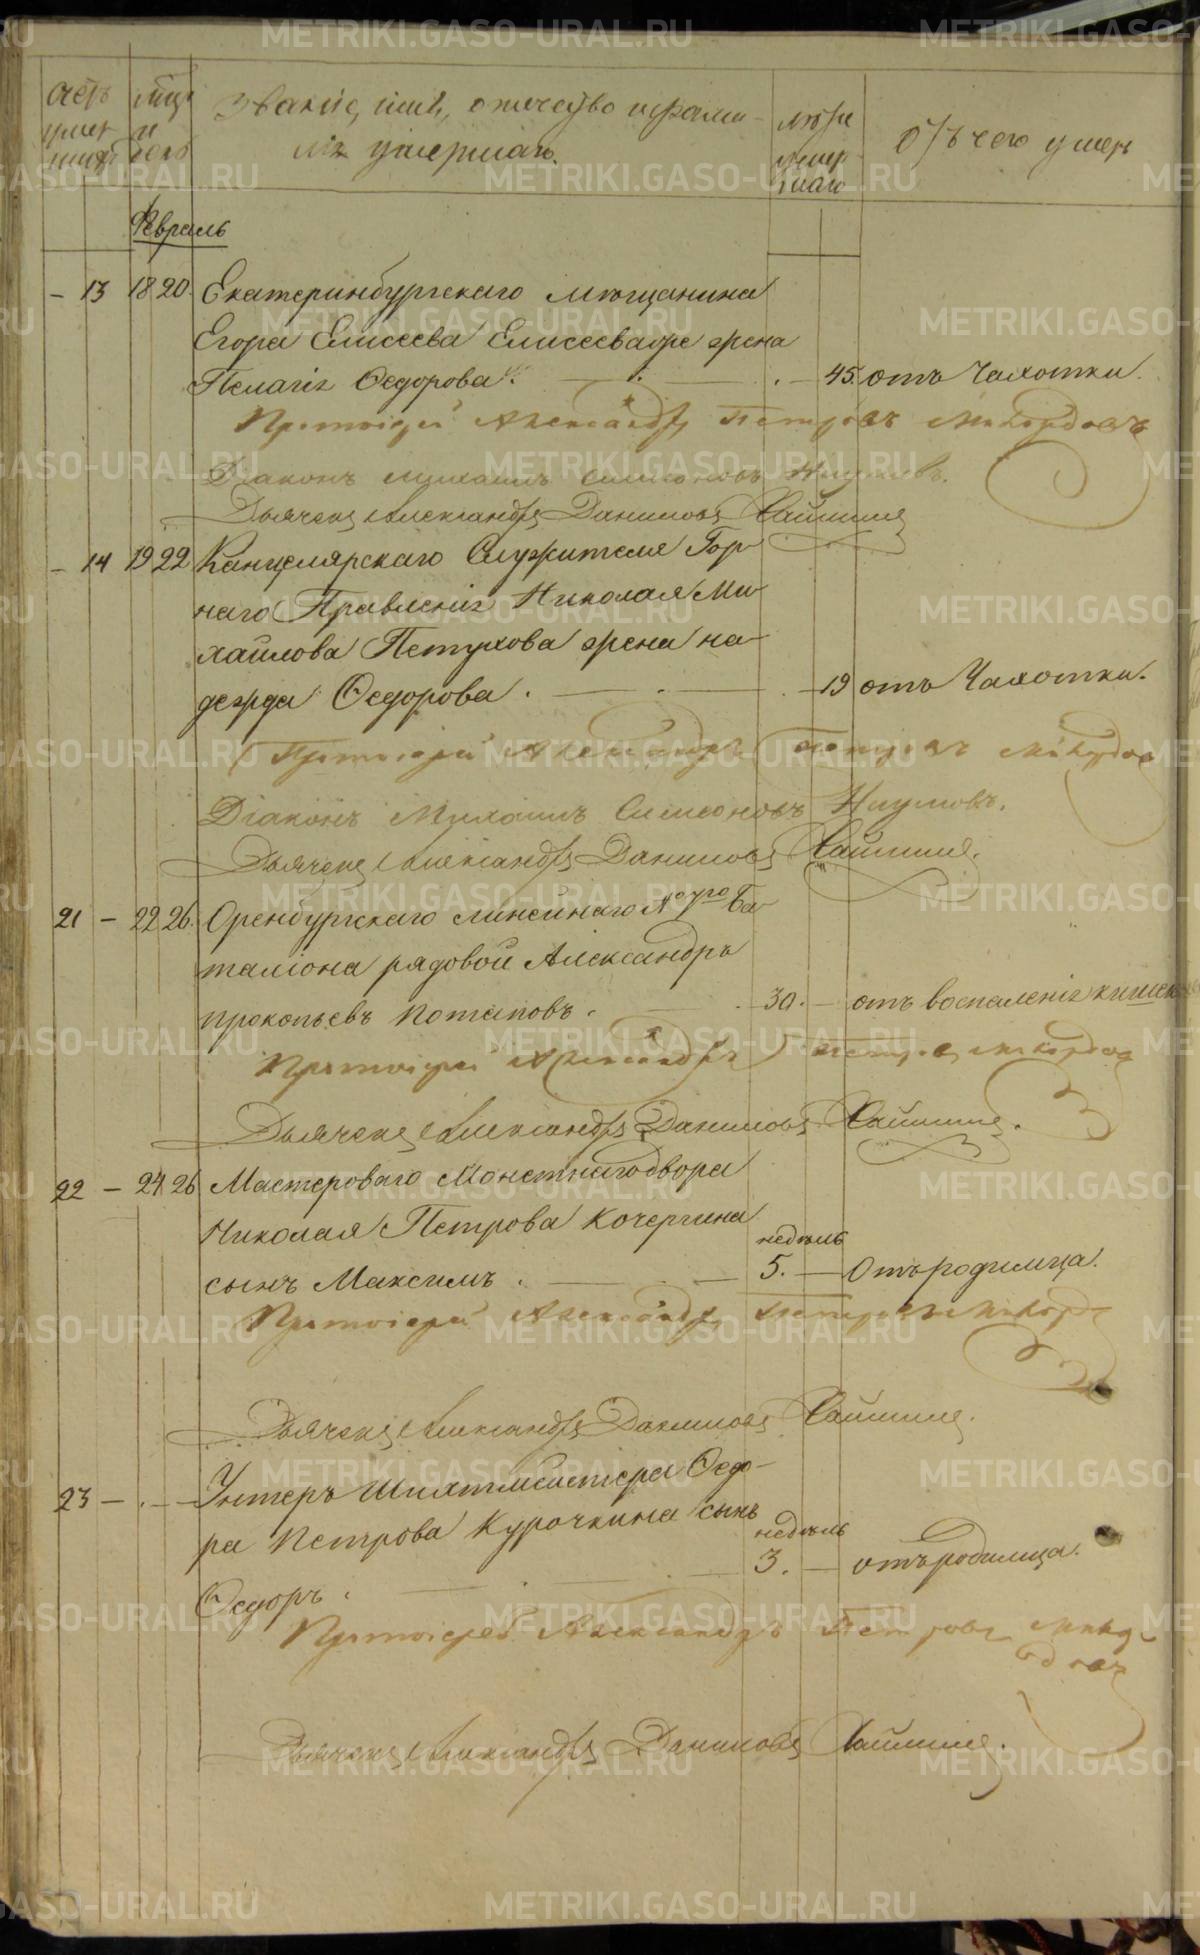 Счетъ умершихъ
Мѣц. и день
Званіе, имя, отчество и фами-
лія умершаго.
лѣта умершаго
Отъ чего умеръ
Февраль
13 18 20 Екатеринбургскаго мѣщанина
Егора Елисеева Елисеева же жена
Пелагія Ѳедорова. 45. отъ Чахотки.
Протоіерей Александръ Петровъ
Діаконъ Михаилъ Симеоновъ Наумовъ.
Дьячекъ Александръ Даниловъ
14 19 22 Канцелярскаго Служителя Гор-
наго Правленія Николая Ми-
хайлова Петухова жена На-
дежда Ѳедорова. 19 отъ Чахотки.
Протоіерей Александръ Петровъ
Діаконъ Михаилъ Симеоновъ Наумовъ.
Дьячекъ Александръ Даниловъ
21 – 22 26. Оренбургскаго линейнаго Ба-
таліона рядовой Александръ
Прокопьевъ Потаповъ. 30. – отъ воспаленія
Протоіерей Александръ Петровъ
Дьячекъ Александръ Даниловъ
22 – 24 26 Мастероваго Монетнаго двора
Николая Петрова Кочергина
недѣль
сынъ Максимъ. 5. – Отъ родимца.
Протоіерей Александръ Петровъ
Дьячекъ Александръ Даниловъ
23 – . – Унтеръ Шихтмейстера Ѳедо-
ра Петрова Курочкина сынъ
недѣль
3. – отъ родимца.
Ѳедоръ.
Протоіерей Александръ Петровъ
Дьячекъ Александръ Даниловъ
METRIKI.GASO-URAL.RU